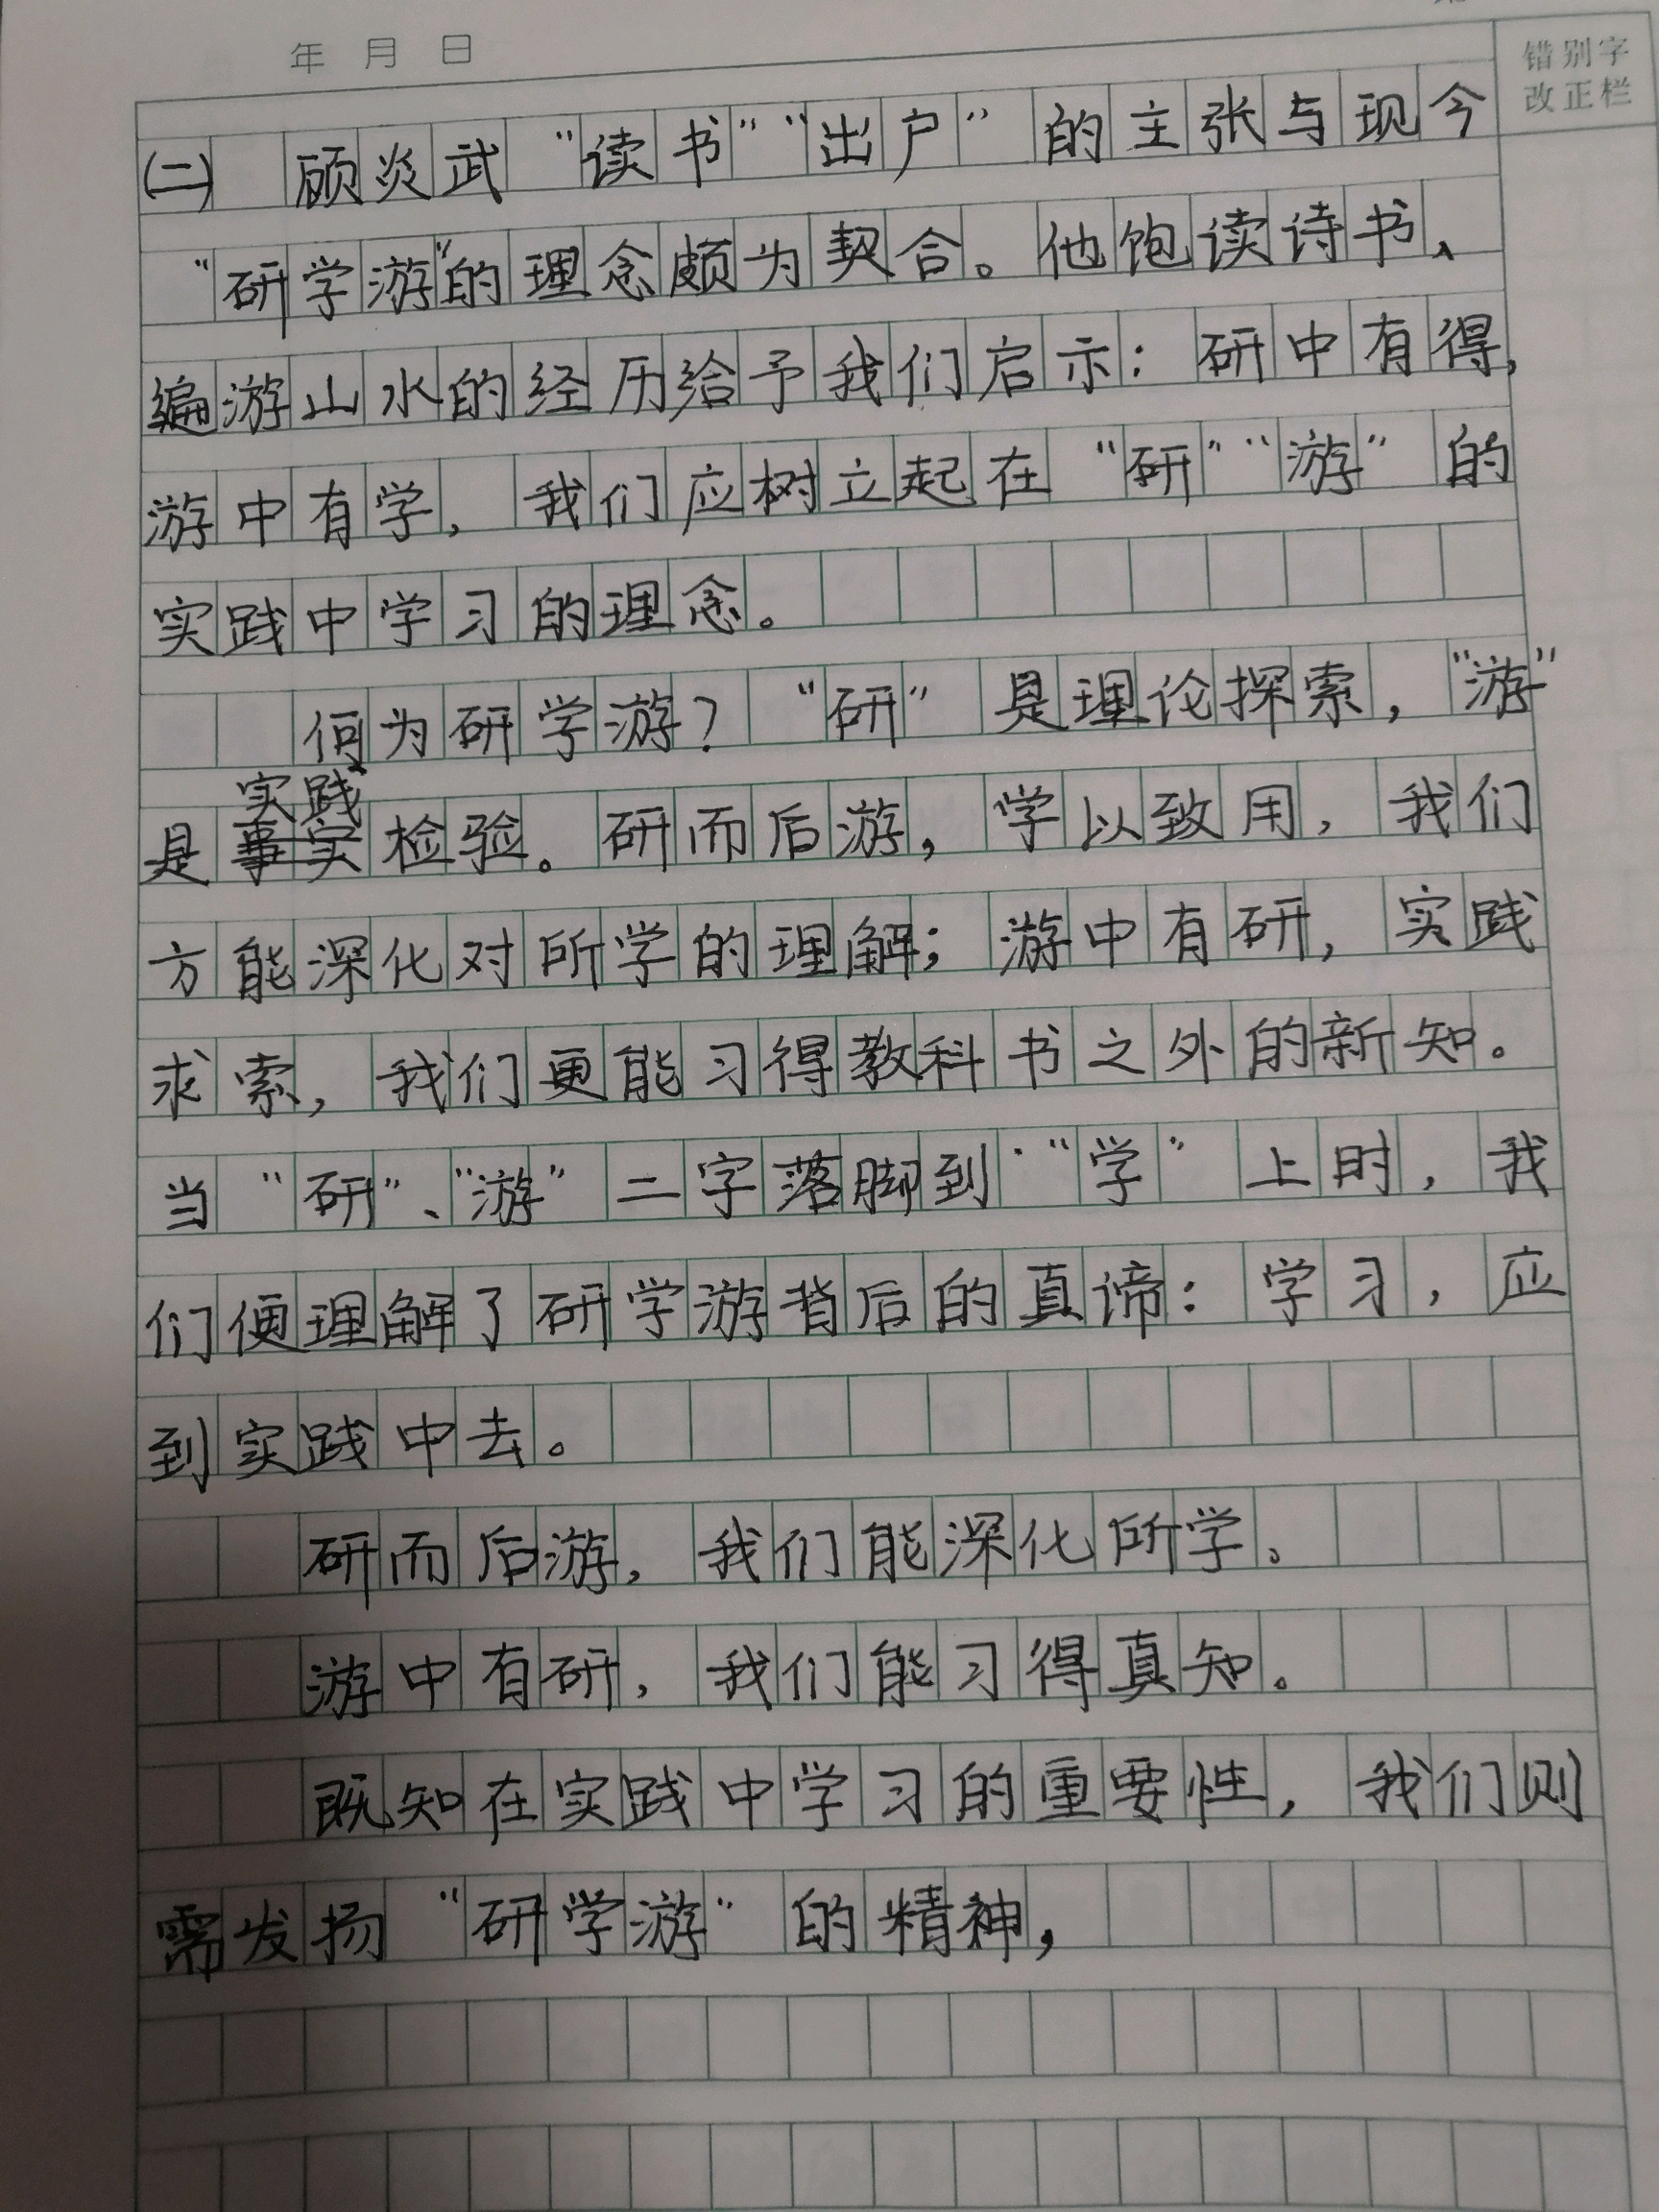 年 月 日
错别字
改正栏
(二) 顾炎武“读书”“出户”的主张与现今
“研学游”的理念颇为契合。他饱读诗书、
遍游山水的经历给予我们启示：研中有得，
游中有学，我们应树立起在“研”“游”的
实践中学习的理念。
何为研学游？“研”是理论探索，“游”
实践
是事实检验。研而后游，学以致用，我们
方能深化对所学的理解；游中有研，实践
求索，我们更能习得教科书之外的新知。
当“研”、“游”二字落脚到“学”上时，我
们便理解了研学游背后的真谛：学习，应
到实践中去。
研而后游，我们能深化所学。
游中有研，我们能习得真知。
既知在实践中学习的重要性，我们则
需发扬“研学游”的精神，